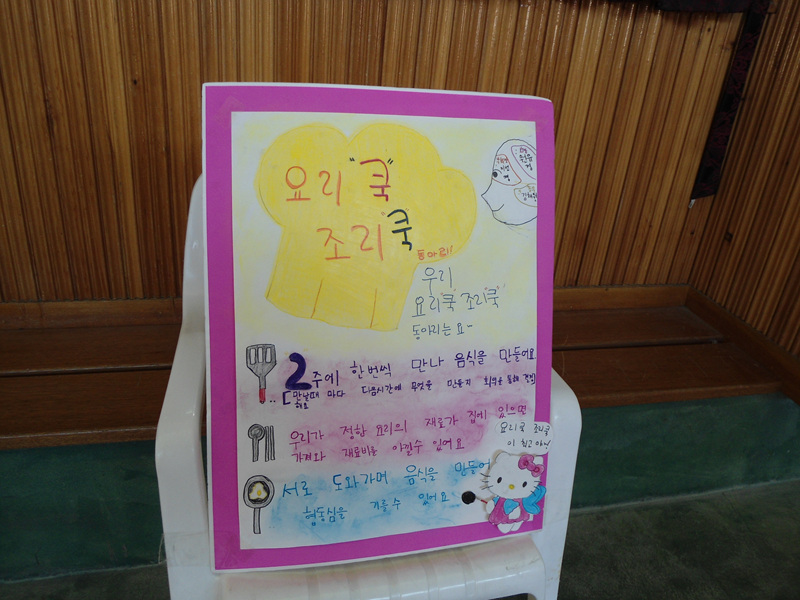 요리 "쿡"
조리 "쿡"
동아리!
우리
요리"쿡" 조리"쿡"
동아리는 요~
2주에 한번씩 만나 음식을 만들어요
[만날때 마다 다음시간에 무엇을 만들지 회의를 통해 정
해요
우리가 정한 요리의 재료가 집에 있으면
가져와 재료비를 아낄수 있어요
서로 도와가며 음식을 만들어
협동심을 기를수 있어요
요리쿡 조리쿡
이 최고야